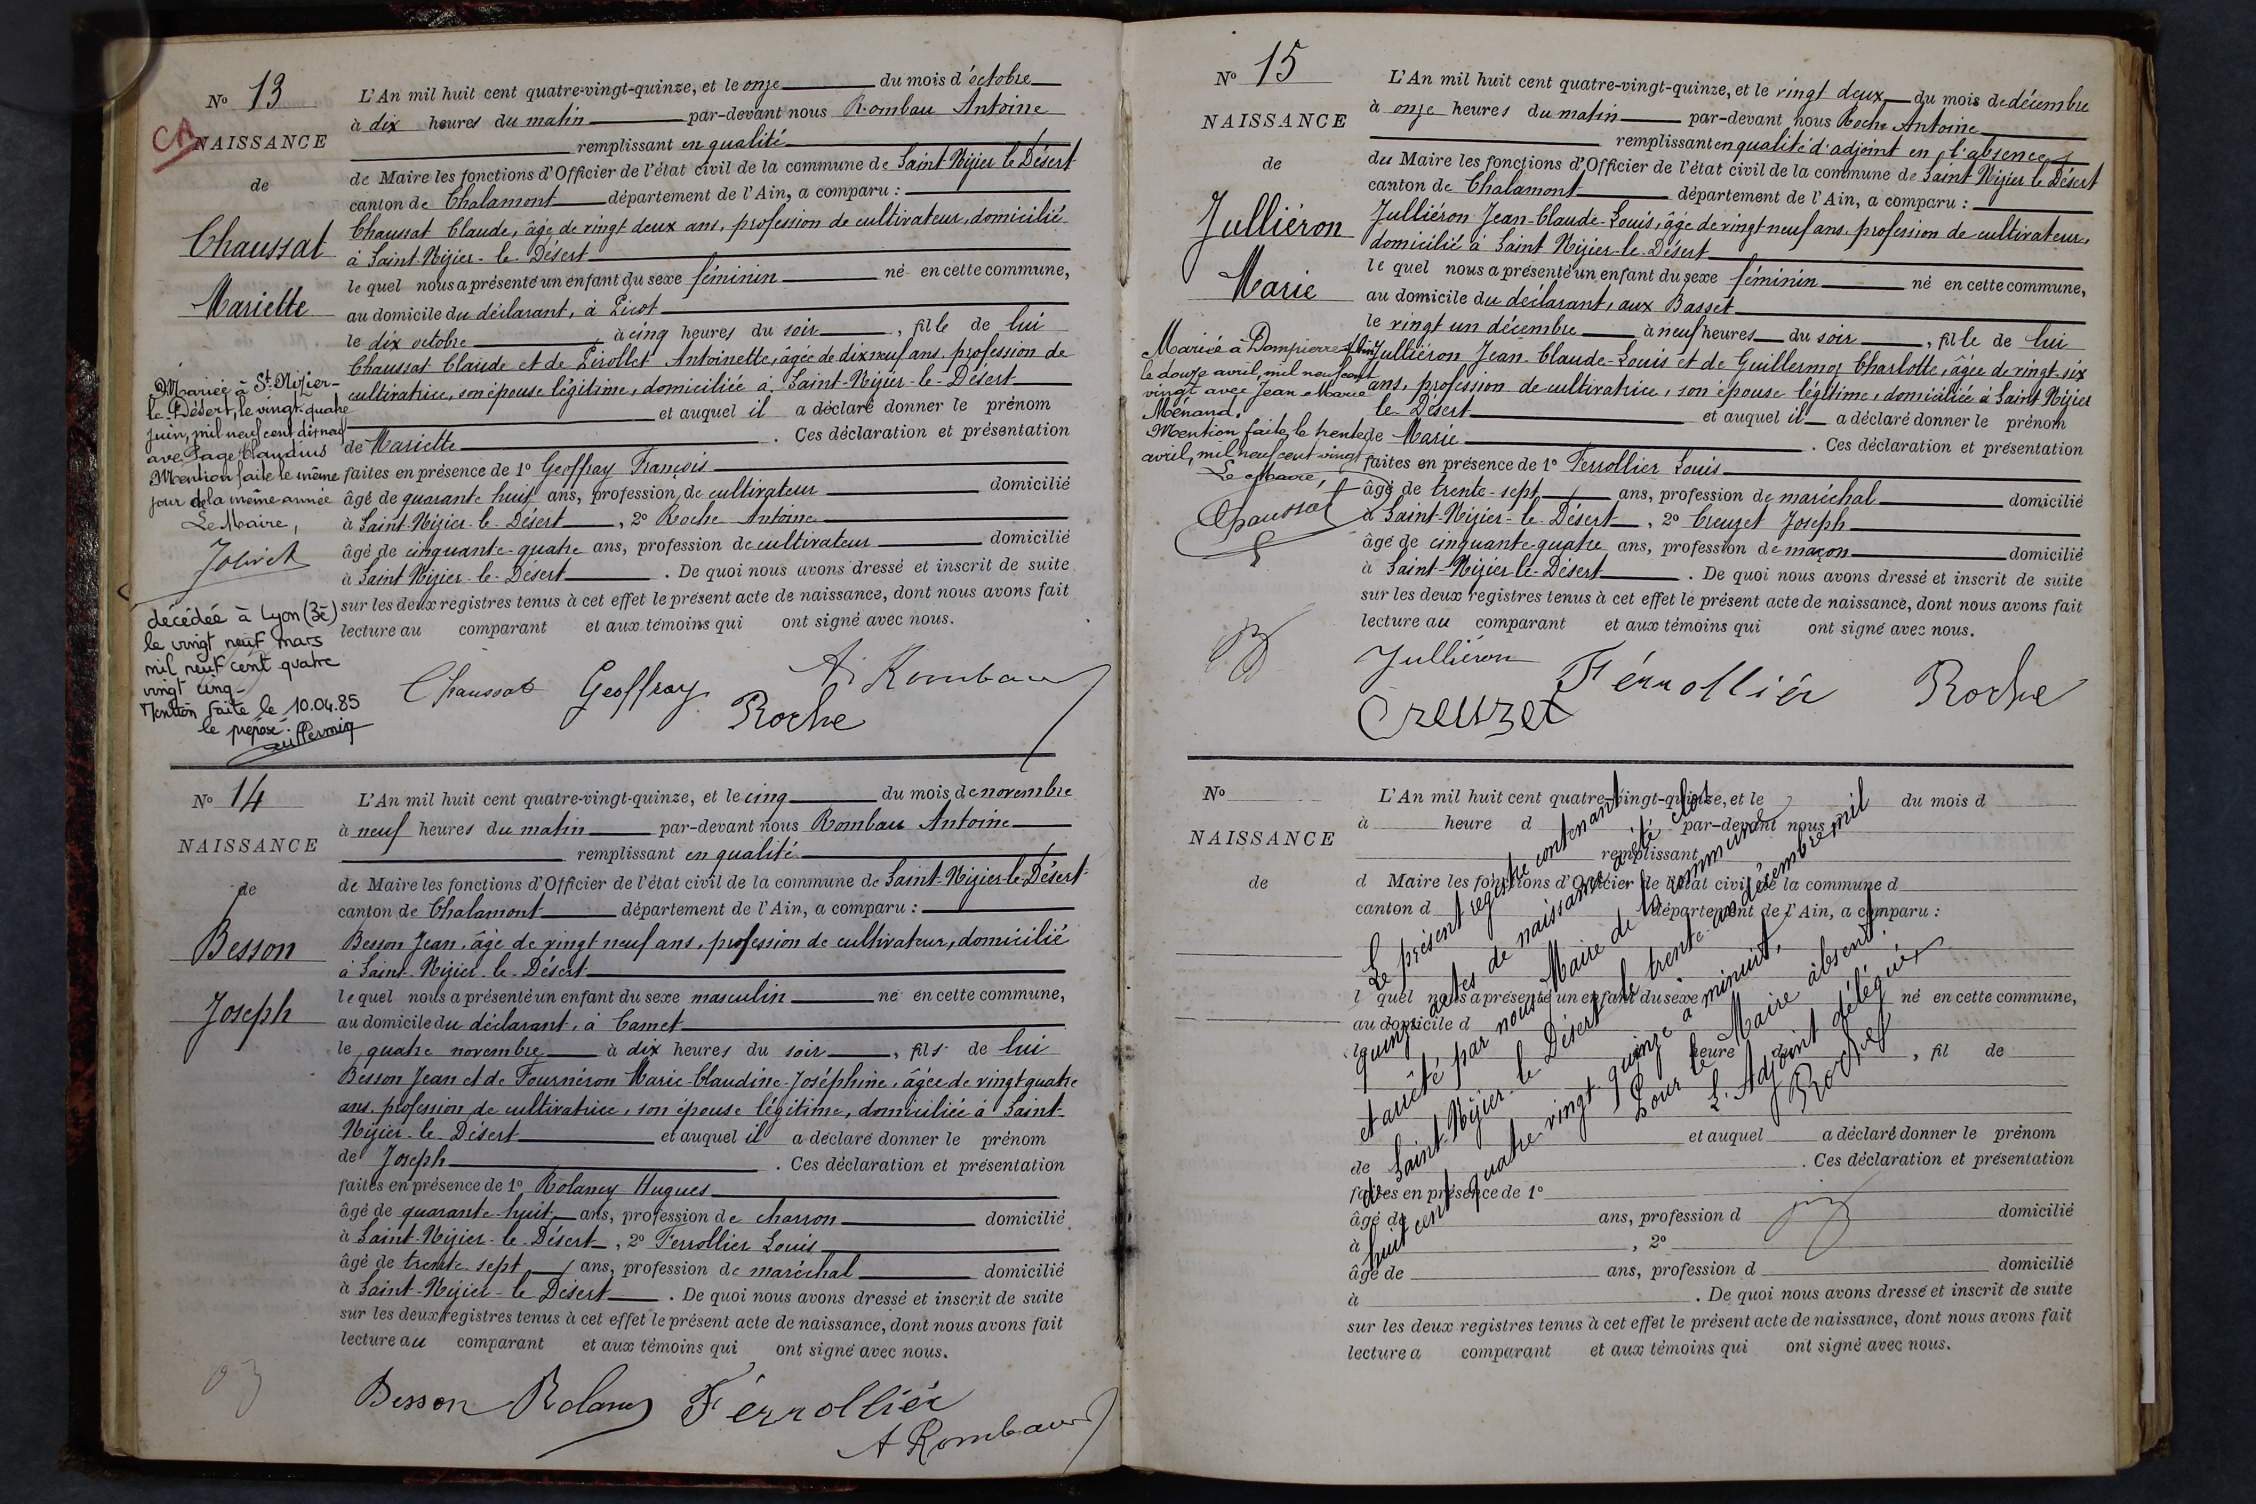 N° 13
CA
NAISSANCE
de
Chaussat
Mariette
L'An mil huit cent quatre-vingt-quinze, et le onze du mois d'octobre
à dix heures du matin par-devant nous Rombau Antoine
remplissant en qualité
de Maire les fonctions d'Officier de l'état civil de la commune de Saint-Nizier le Désert
canton de Chalamont département de l'Ain, a comparu :
Chaussat Claude, âgé de vingt deux ans, profession de cultivateur, domicilié
à Saint-Nizier-le-Désert
le quel nous a présenté un enfant du sexe féminin né en cette commune,
au domicile du déclarant, à
le dix octobre à cinq heures du soir, fille de lui
Chaussat Claude et de Antoinette, âgée de dix neuf ans, profession de
cultivatrice, son épouse légitime, domiciliée à Saint-Nizier-le-Désert
et auquel il a déclaré donner le prénom
de Mariette. Ces déclaration et présentation
faites en présence de 1° Geoffray François
âgé de quarante huit ans, profession de cultivateur domicilié
à Saint-Nizier-le-Désert, 2° Roche Antoine
âgé de cinquante-quatre ans, profession de cultivateur domicilié
à Saint Nizier-le-Désert. De quoi nous avons dressé et inscrit de suite
sur les deux registres tenus à cet effet le présent acte de naissance, dont nous avons fait
lecture au comparant et aux témoins qui ont signé avec nous.
Chaussat Geoffray A. Rombau
Roche
Mariée à St-Nizier-
le-Désert, le vingt-quatre
juin, mil neuf cent dix neuf
avec Page Claudius
Mention faite le même
jour de la même année
Le Maire,
décédée à Lyon (3e)
le vingt neuf mars
mil neuf cent quatre
vingt cinq-
Mention faite le 10.04.85
le préposé.
N° 14
NAISSANCE
de
Besson
Joseph
L'An mil huit cent quatre-vingt-quinze, et le cinq du mois de novembre
à neuf heures du matin par-devant nous Rombau Antoine
remplissant en qualité
de Maire les fonctions d'Officier de l'état civil de la commune de Saint-Nizier-le-Désert
canton de Chalamont département de l'Ain, a comparu :
Besson Jean, âgé de vingt neuf ans, profession de cultivateur, domicilié
à Saint-Nizier-le-Désert
le quel nous a présenté un enfant du sexe masculin né en cette commune,
au domicile du déclarant, à Camet
le quatre novembre à dix heures du soir, fils de lui
Besson Jean et de Fournéron Marie-Claudine-Joséphine, âgée de vingt quatre
ans, profession de cultivatrice, son épouse légitime, domiciliée à Saint-
Nizier-le-Désert et auquel il a déclaré donner le prénom
de Joseph. Ces déclaration et présentation
faites en présence de 1° Rolancy Hugues
âgé de quarante-huit ans, profession de charron domicilié
à Saint-Nizier-le-Désert, 2° Ferrollier Louis
âgé de trente-sept ans, profession de maréchal domicilié
à Saint-Nizier-le Désert. De quoi nous avons dressé et inscrit de suite
sur les deux registres tenus à cet effet le présent acte de naissance, dont nous avons fait
lecture au comparant et aux témoins qui ont signé avec nous.
Besson Rolancy Férrolliér
A Rombau
N° 15
NAISSANCE
de
Julliéron
Marie
L'An mil huit cent quatre-vingt-quinze, et le vingt deux du mois de décembre
à onze heures du matin par-devant nous Roche Antoine
remplissant en qualité d'adjoint en l'absence
du Maire les fonctions d'Officier de l'état civil de la commune de Saint Nizier le Désert
canton de Chalamont département de l'Ain, a comparu :
Julliéron Jean-Claude-Louis, âgé de vingt-neuf ans, profession de cultivateur,
domicilié à Saint Nizier-le-Désert
le quel nous a présenté un enfant du sexe féminin né en cette commune,
au domicile du déclarant, aux Basset
le vingt un décembre à neuf heures du soir, fille de lui
Julliéron Jean-Claude-Louis et de Guillermoz Charlotte, âgée de vingt-six
ans, profession de cultivatrice, son épouse légitime, domiciliée à Saint Nizier
le-Désert et auquel il a déclaré donner le prénom
de Marie. Ces déclaration et présentation
faites en présence de 1° Ferrollier Louis
âgé de trente-sept ans, profession de maréchal domicilié
à Saint-Nizier-le-Désert, 2° Creuzet Joseph
âgé de cinquante-quatre ans, profession de maçon domicilié
à Saint-Nizier-le-Désert. De quoi nous avons dressé et inscrit de suite
sur les deux registres tenus à cet effet le présent acte de naissance, dont nous avons fait
lecture au comparant et aux témoins qui ont signé avec nous.
Julliéron Férrolliér Roche
Creuzet
Mariée à Dompierre
le douze avril, mil neuf cent
vingt avec Jean Marie
Ménand.
Mention faite le trente
avril, mil neuf cent vingt
Le Maire,
Chaussat
N°
NAISSANCE
de
L'An mil huit cent quatre-vingt-quinze, et le du mois d
à heure d par-devant nous
remplissant
d Maire les fonctions d'Officier de l'état civil de la commune d
canton d département de l'Ain, a comparu :
l quel nous a présenté un enfant du sexe né en cette commune,
au domicile d
le heure d, fil de
et auquel a déclaré donner le prénom
de. Ces déclaration et présentation
faites en présence de 1°
âgé de ans, profession d domicilié
à, 2°
âgé de ans, profession d domicilié
à. De quoi nous avons dressé et inscrit de suite
sur les deux registres tenus à cet effet le présent acte de naissance, dont nous avons fait
lecture a comparant et aux témoins qui ont signé avec nous.
Le présent registre contenant
quinze actes de naissances a été clos
et arrêté par nous Maire de la commune
de Saint-Nizier-le Désert le trente-un décembre mil
huit cent quatre vingt-quinze à minuit,
Pour le Maire absent
L'Adjoint délégué,
Roche